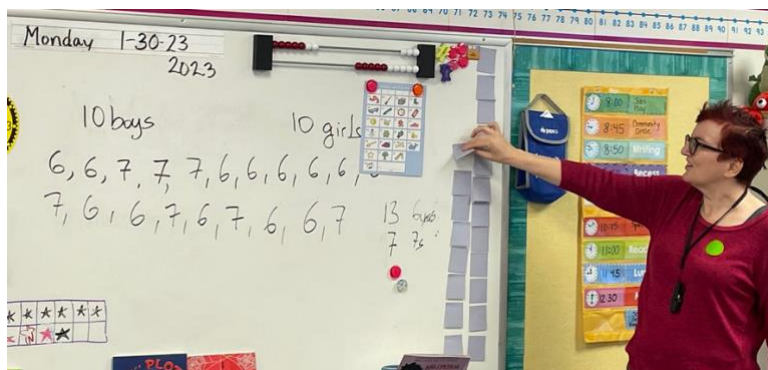 69 70 71 72 73 74 75 76 77 78 79 80 81 82 83 84 85 86 87 88 89 90 91 92 93
Monday 1-30-23
2023
10 boys
10 girls
6, 6, 7, 7, 7, 6, 6, 6, 6, 6,
7, 6, 6, 7, 6, 7, 6, 6, 7
13 6s
7 7s
8:00
8:45 Community Circle
8:50 Writing
Recess
10:15
11:00 Read
11:45 Lun
12:30
PLOT